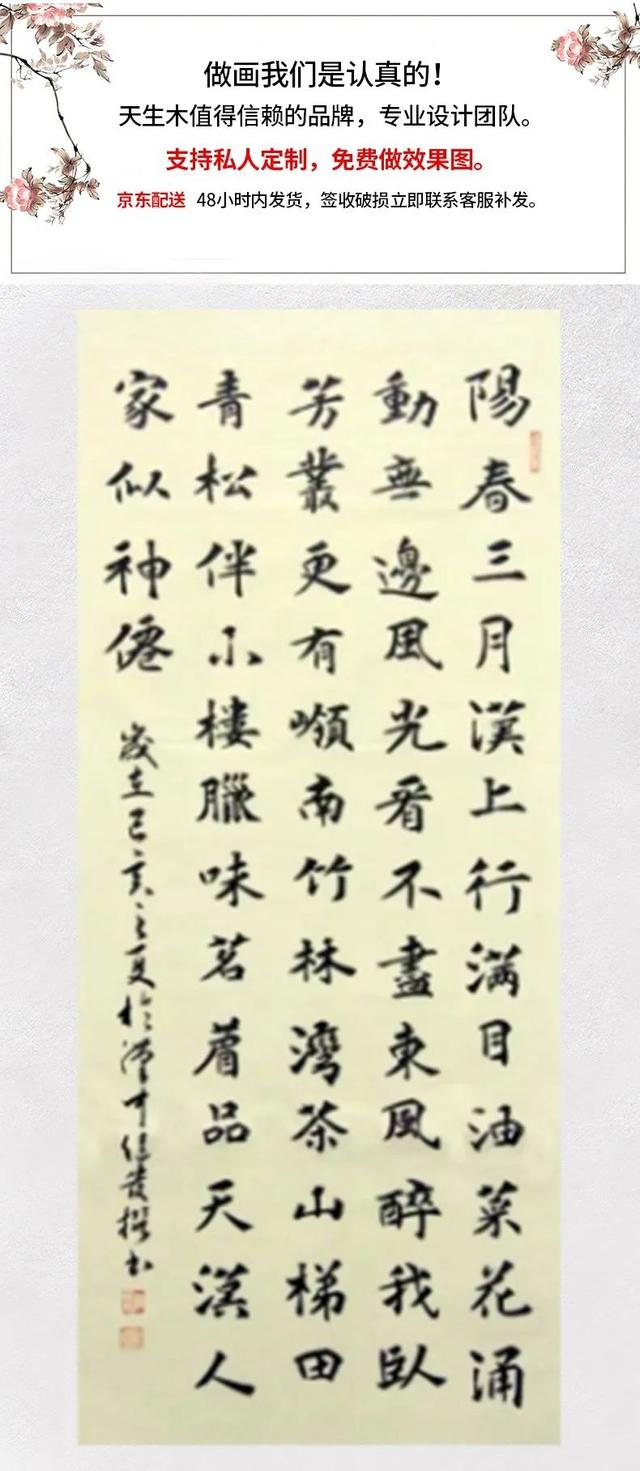 做画我们是认真的！
天生木值得信赖的品牌，专业设计团队。
支持私人定制，免费做效果图。
京东配送 48小时内发货，签收破损立即联系客服补发。
陽春三月漢上行滿目油菜花涌
動無邊風光看不盡東風醉我臥
芳叢更有嶺南竹林灣茶山梯田
青松伴小樓臘味茗眉品天漢人
家似神僊
歲在己亥之夏於漢中
撰書